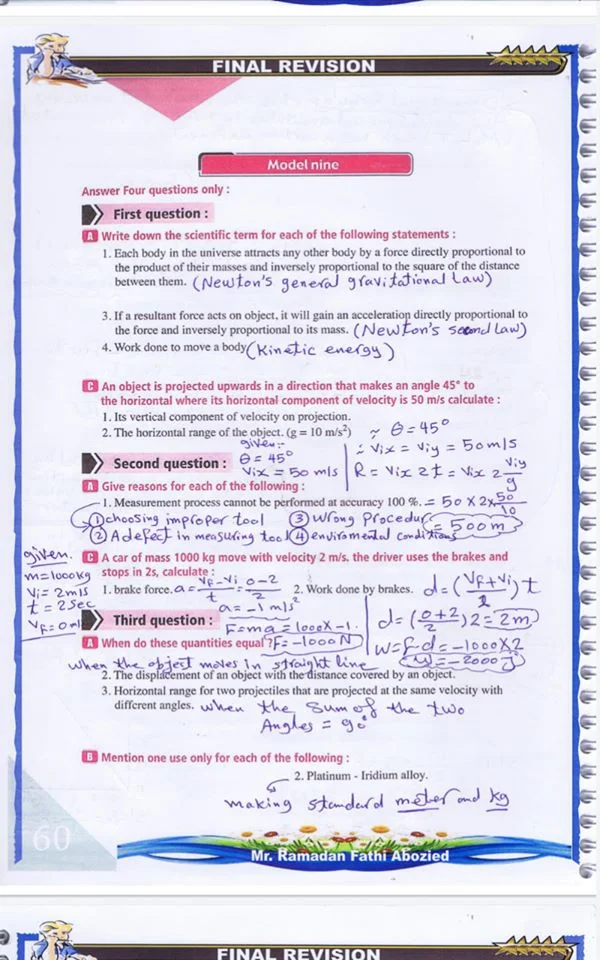 FINAL REVISION
Model nine
Answer Four questions only :
First question :
A Write down the scientific term for each of the following statements :
1. Each body in the universe attracts any other body by a force directly proportional to
the product of their masses and inversely proportional to the square of the distance
between them. (Newton's general gravitational Law)
3. If a resultant force acts on object, it will gain an acceleration directly proportional to
the force and inversely proportional to its mass. (Newton's second law)
4. Work done to move a body (Kinetic energy)
C An object is projected upwards in a direction that makes an angle 45° to
the horizontal where its horizontal component of velocity is 50 m/s calculate :
1. Its vertical component of velocity on projection.
2. The horizontal range of the object. (g = 10 m/s²)
∵ θ = 45°
given:-
θ = 45°
Vix = 50 m/s
∴ Vix = Viy = 50 m/s
R = Vix 2t = Vix 2 Viy/g
= 50 × 2 × 50/10
= 500 m
Second question :
A Give reasons for each of the following :
1. Measurement process cannot be performed at accuracy 100 %.
① choosing improper tool ③ Wrong Procedur
② A defect in measuring tool ④ enviromental conditions
C A car of mass 1000 kg move with velocity 2 m/s. the driver uses the brakes and
stops in 2s, calculate :
1. brake force. a = Vf-Vi/t = 0-2/2
2. Work done by brakes. d = (Vf+Vi/2) t
given.
m = 1000 kg
Vi = 2 m/s
t = 2 sec
Vf = 0 m/
a = -1 m/s²
F = ma = 1000 × -1
F = -1000 N
d = (0+2/2) 2 = 2m
W = F·d = -1000 × 2
W = -2000 J
Third question :
A When do these quantities equal ?
when the object moves in straight line
2. The displacement of an object with the distance covered by an object.
3. Horizontal range for two projectiles that are projected at the same velocity with
different angles. when the Sum of the two
Angles = 90°
B Mention one use only for each of the following :
2. Platinum - Iridium alloy.
making standard meter and kg
60
Mr. Ramadan Fathi Abozied
FINAL REVISION